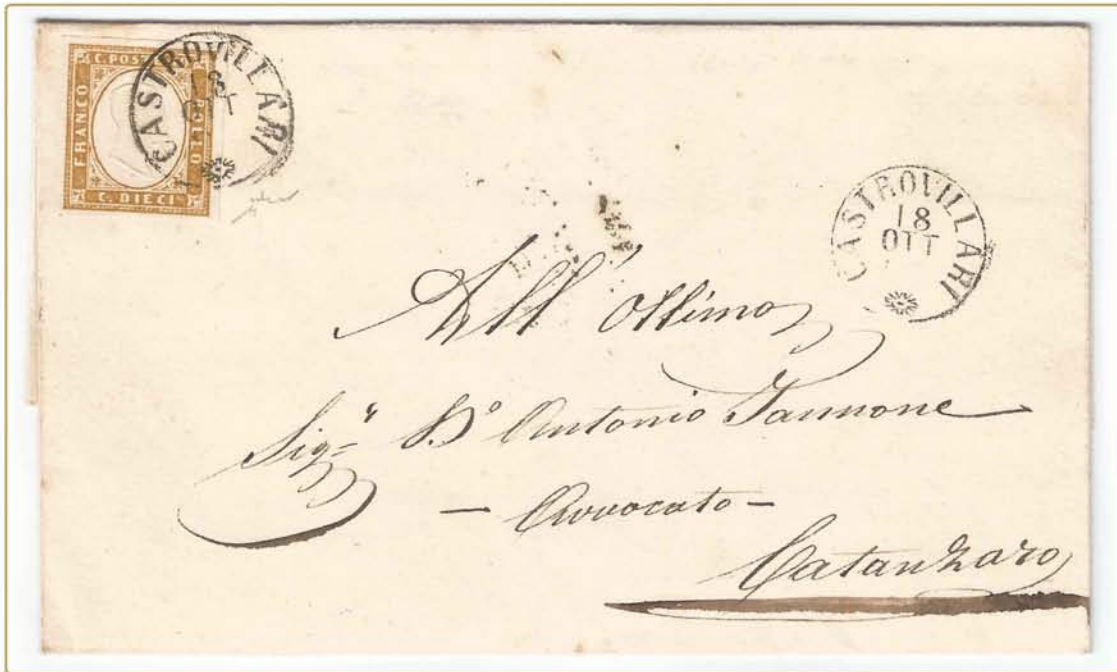 C. POS
FRANCO
BOLLO
C. DIECI
CASTROVILLARI
18
OTT
CASTROVILLARI
18
OTT
All' Ottimo
Sig.r Dn Antonio Iannone
- Avvocato -
Catanzaro